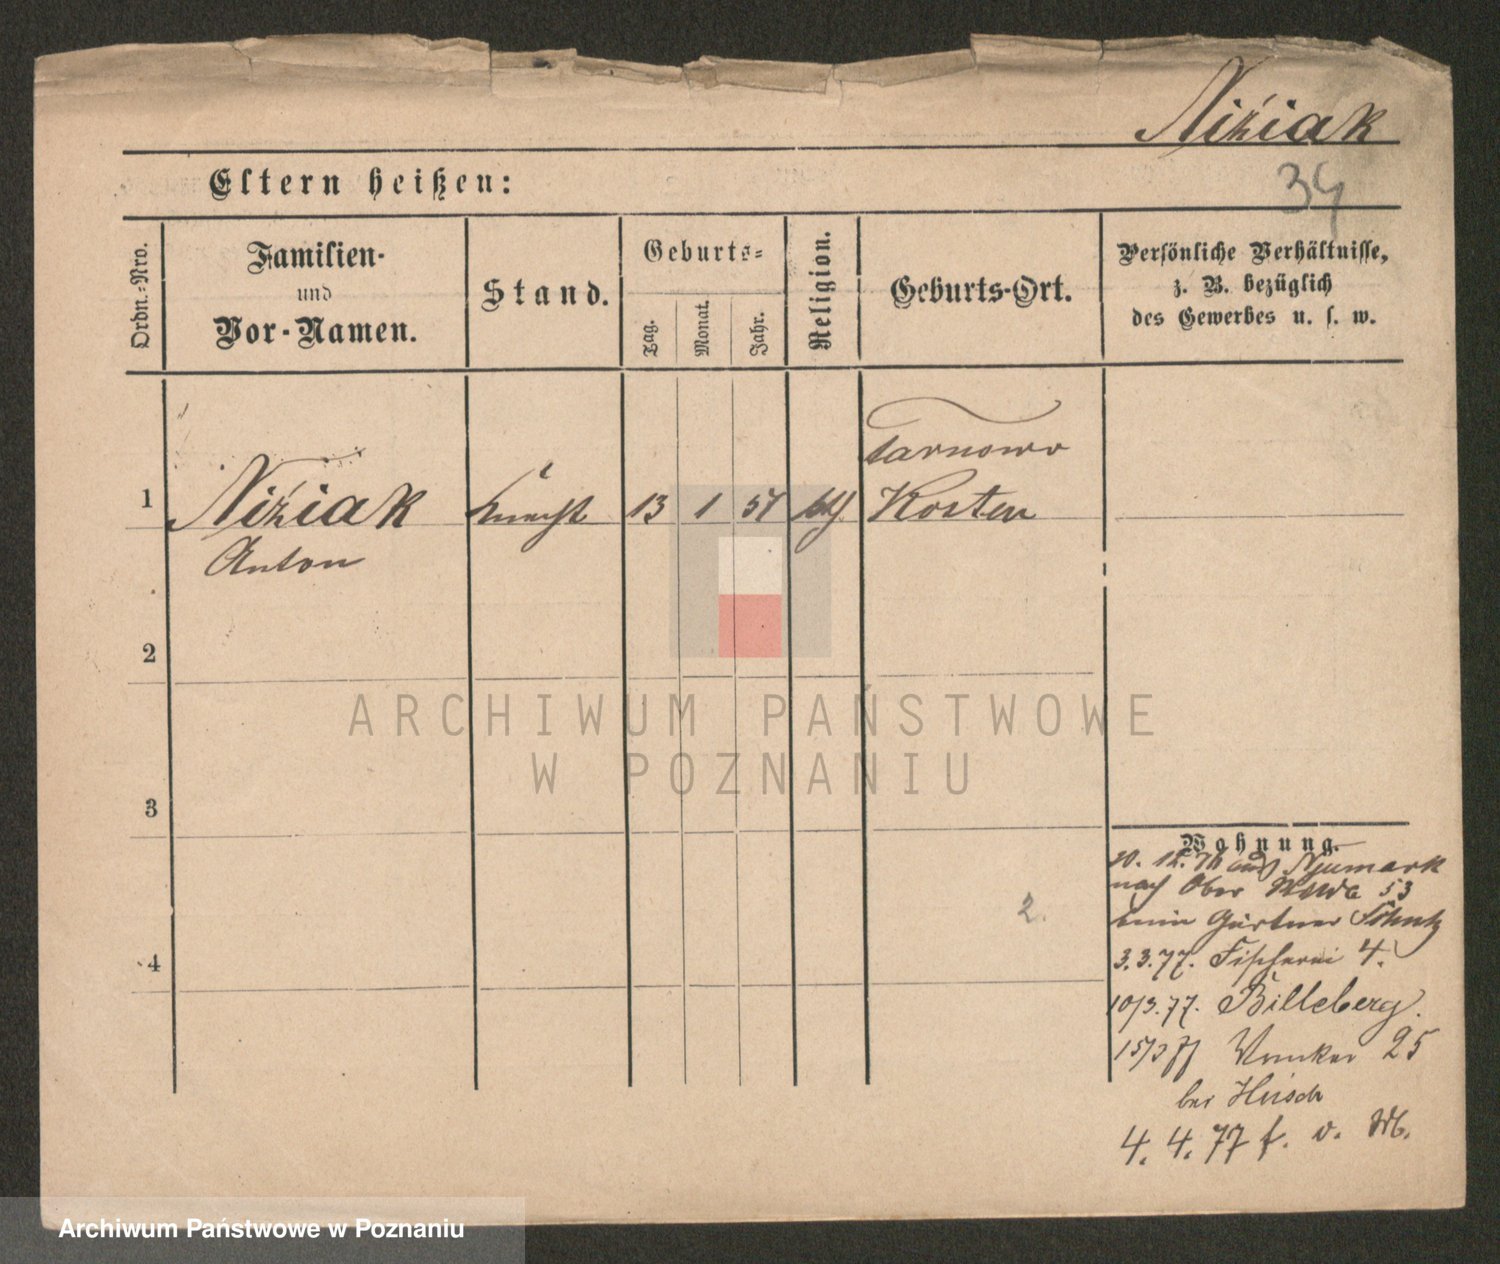 Niźiak
34
Eltern heißen:
Ordn.-Nro.
Familien-
und
Vor-Namen.
Stand.
Geburts-
Tag.
Monat.
Jahr.
Religion.
Geburts-Ort.
Persönliche Verhältnisse,
z. B. bezüglich
des Gewerbes u. s. w.
1
Niźiak
Anton
Knecht
13
1
57
kth.
Tarnowo
Kosten
2
3
4
ARCHIWUM PAŃSTWOWE
W POZNANIU
Wohnung.
aus Neumark
nach Ober Wilda 53
beim Gärtner
3.3.77. Fischerei 4.
10/3.77. Billeberg.
15/3 77 25
bei Hirsch
4.4.77 f. v.
2.
Archiwum Państwowe w Poznaniu